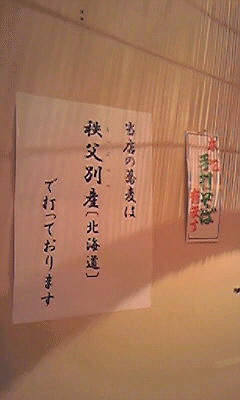 当店の蕎麦は
秩父別産〔北海道〕
で打っております
手打そば